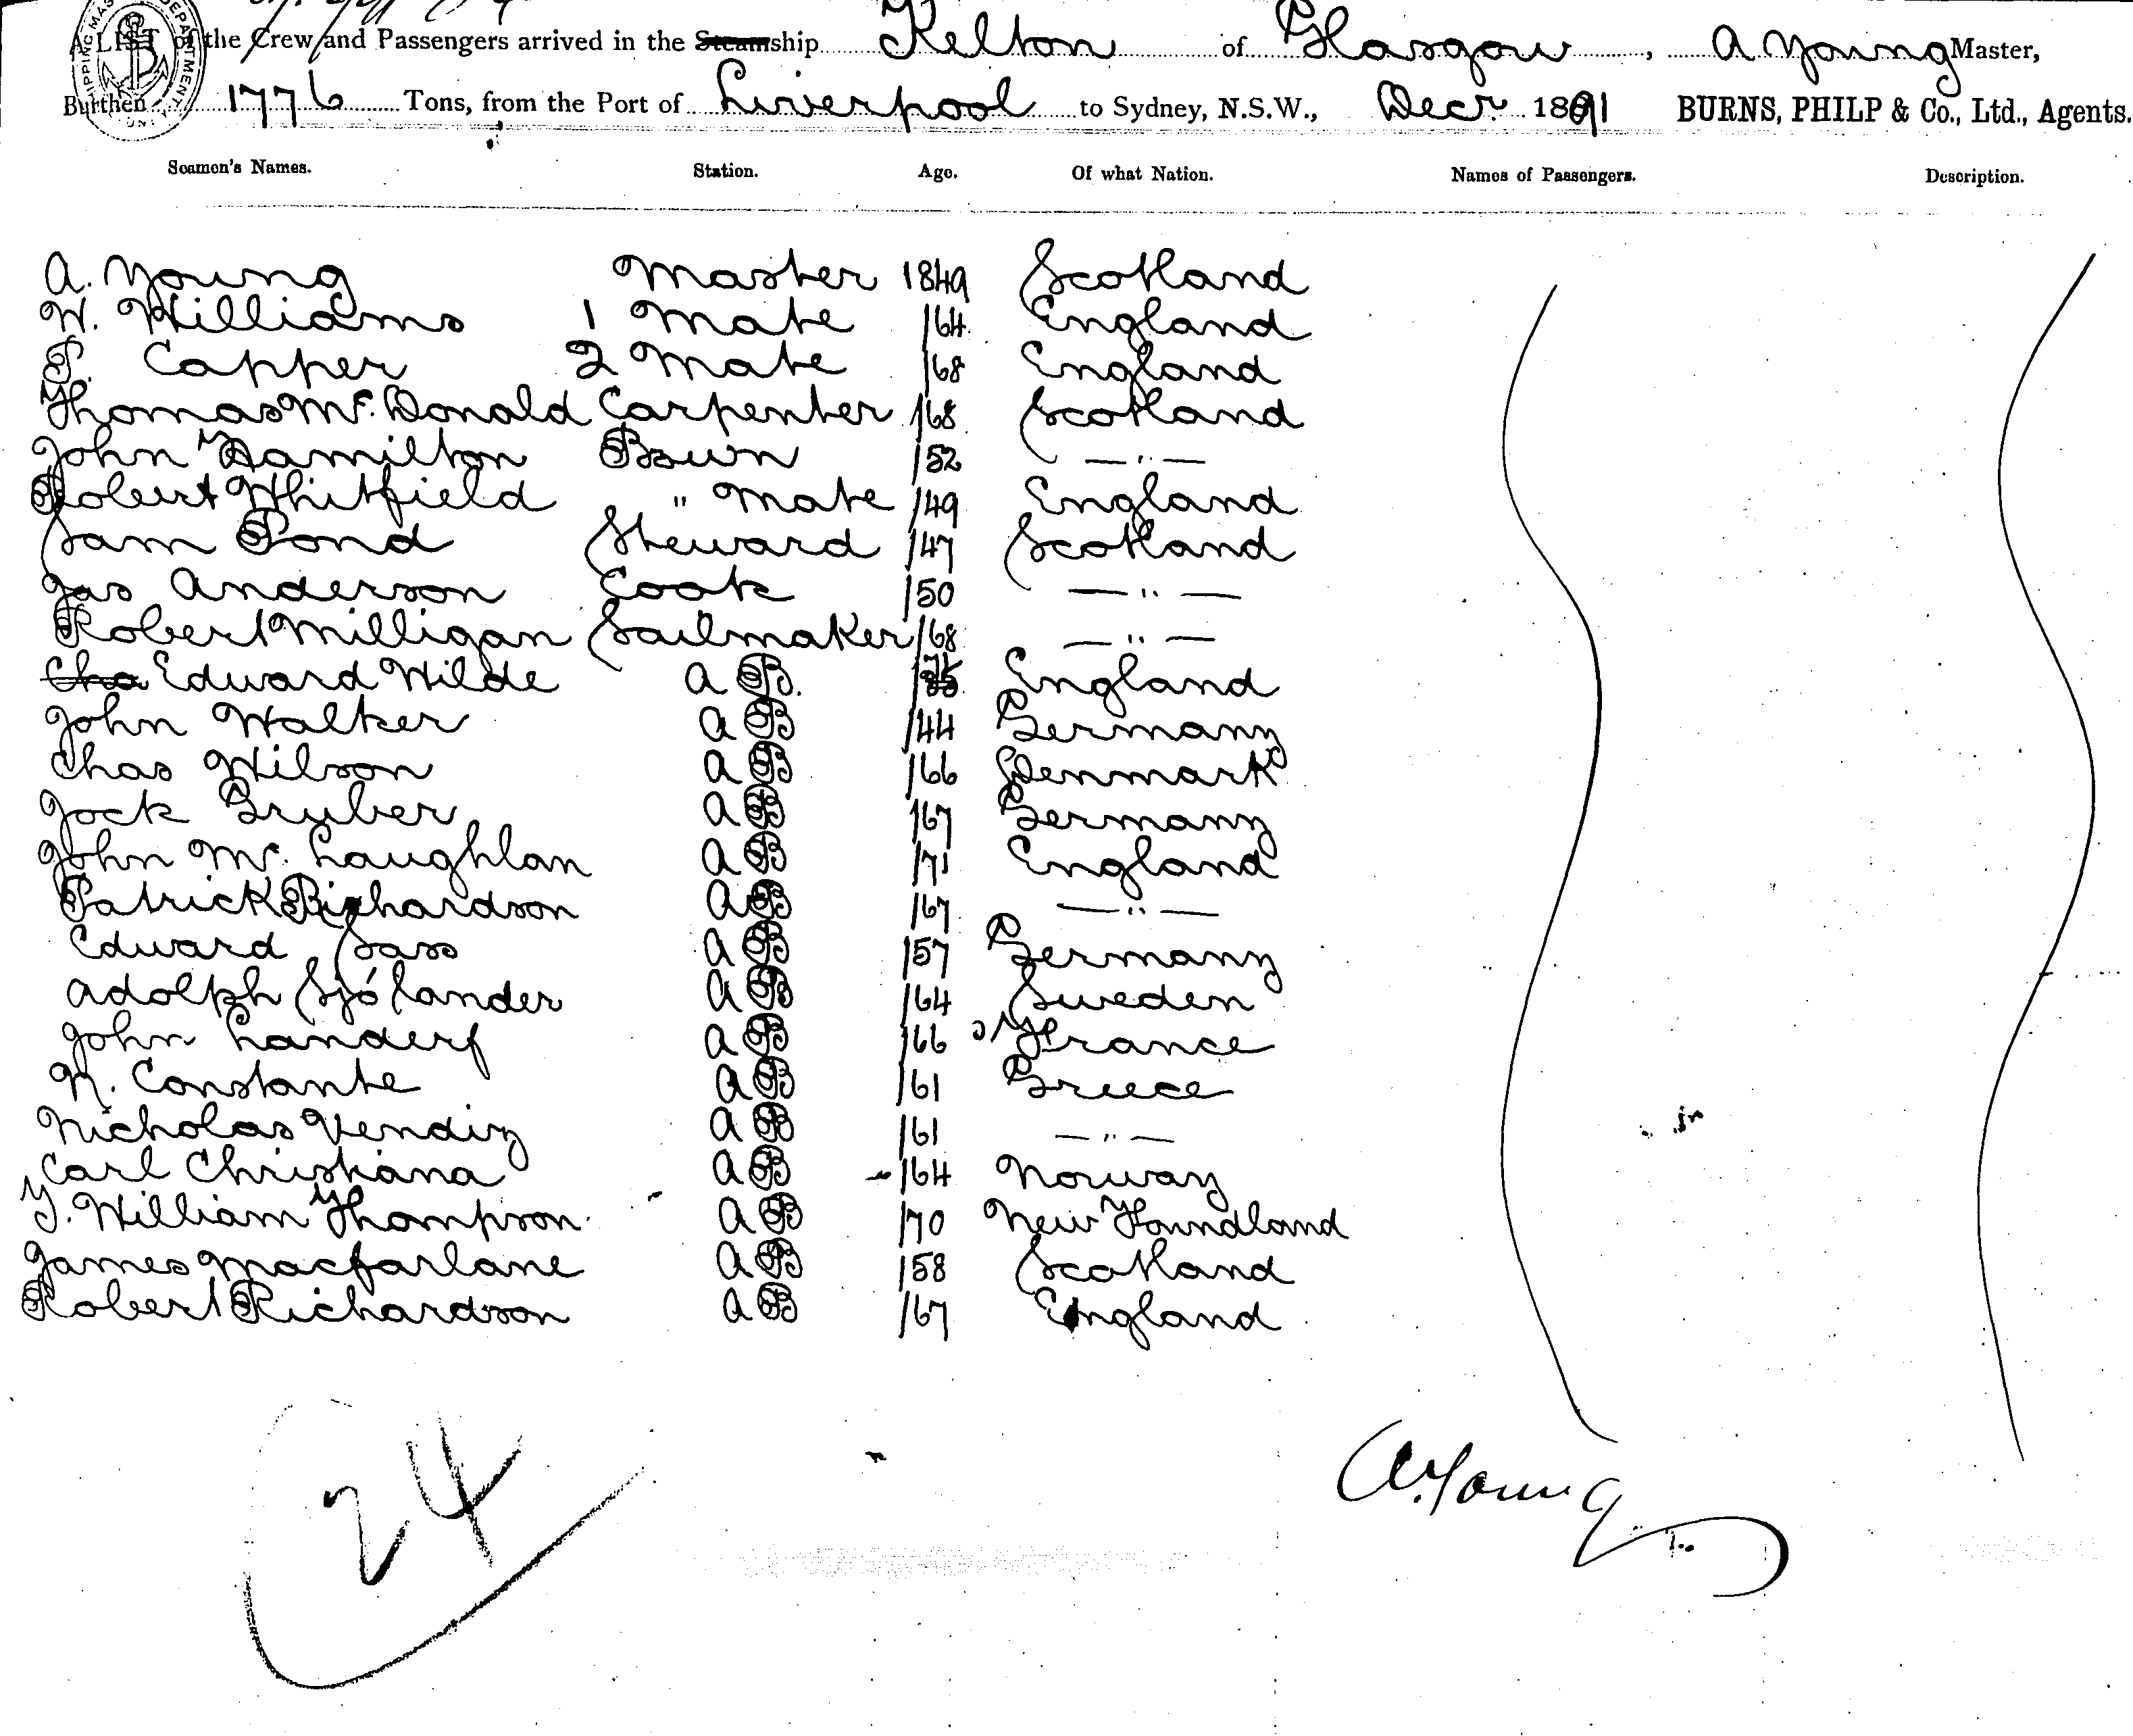 A LIST of the Crew and Passengers arrived in the Steamship Kelton of Glasgow, A Young Master,
Burthen 1776 Tons, from the Port of Liverpool to Sydney, N.S.W., Decr 1891 BURNS, PHILP & Co., Ltd., Agents.
Seamen's Names. Station. Age. Of what Nation. Names of Passengers. Description.
A. Young Master 1849 Scotland
W. Williams 1 Mate /64 England
P. Capper 2 Mate /68 England
Thomas Mc. Donald Carpenter /68 Scotland
John Hamilton Bsun /52 — " —
Robert Whitfield " Mate /49 England
Sam Pond Steward /47 Scotland
Jas Anderson Cook /50 — " —
Robert Milligan Sailmaker /68 — " —
Cha Edward Wilde A B. England
John Walker A B /44 Germany
Chas Wilson A B /66 Denmark
Jock Gruber A B /67 Germany
John Mc. Laughlan A B /71 England
Patrick Richardson A B /67 — " —
Edward Sass A B /57 Germany
Adolph Sjólander A B /64 Sweden
John Landerf A B /66 France
N. Constante A B /61 Greece
Nicholas Vendiz A B /61 — " —
Carl Christiana A B /64 Norway
T. William Thompson A B /70 New Foundland
James Macfarlane A B /58 Scotland
Robert Richardson A B /67 England
24
A. Young